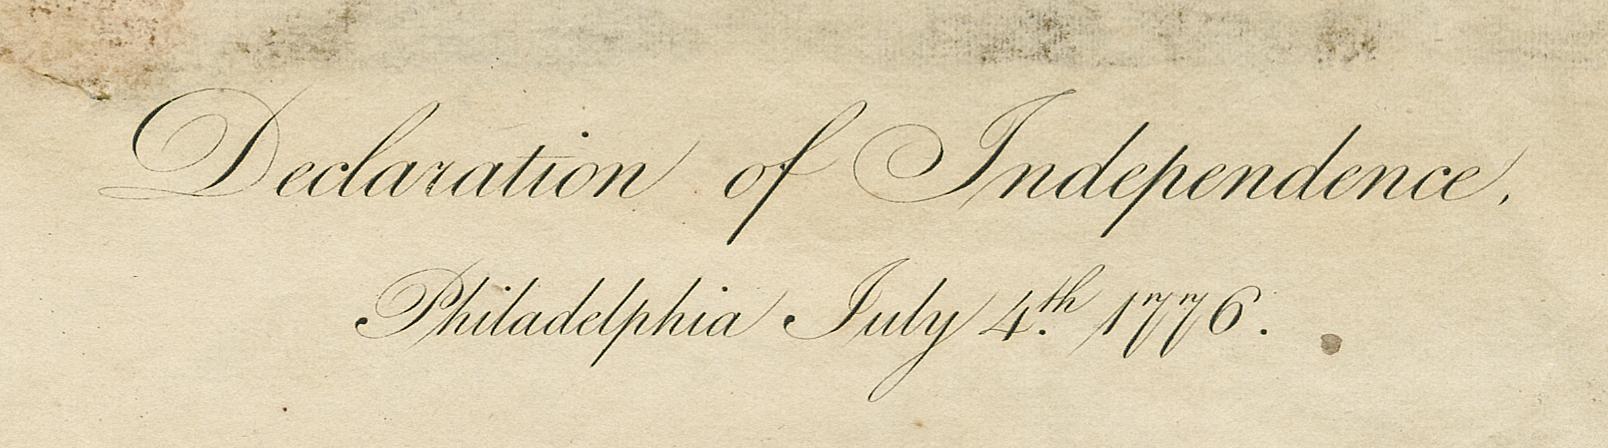 Declaration of Independence,
Philadelphia July 4.th 1776.